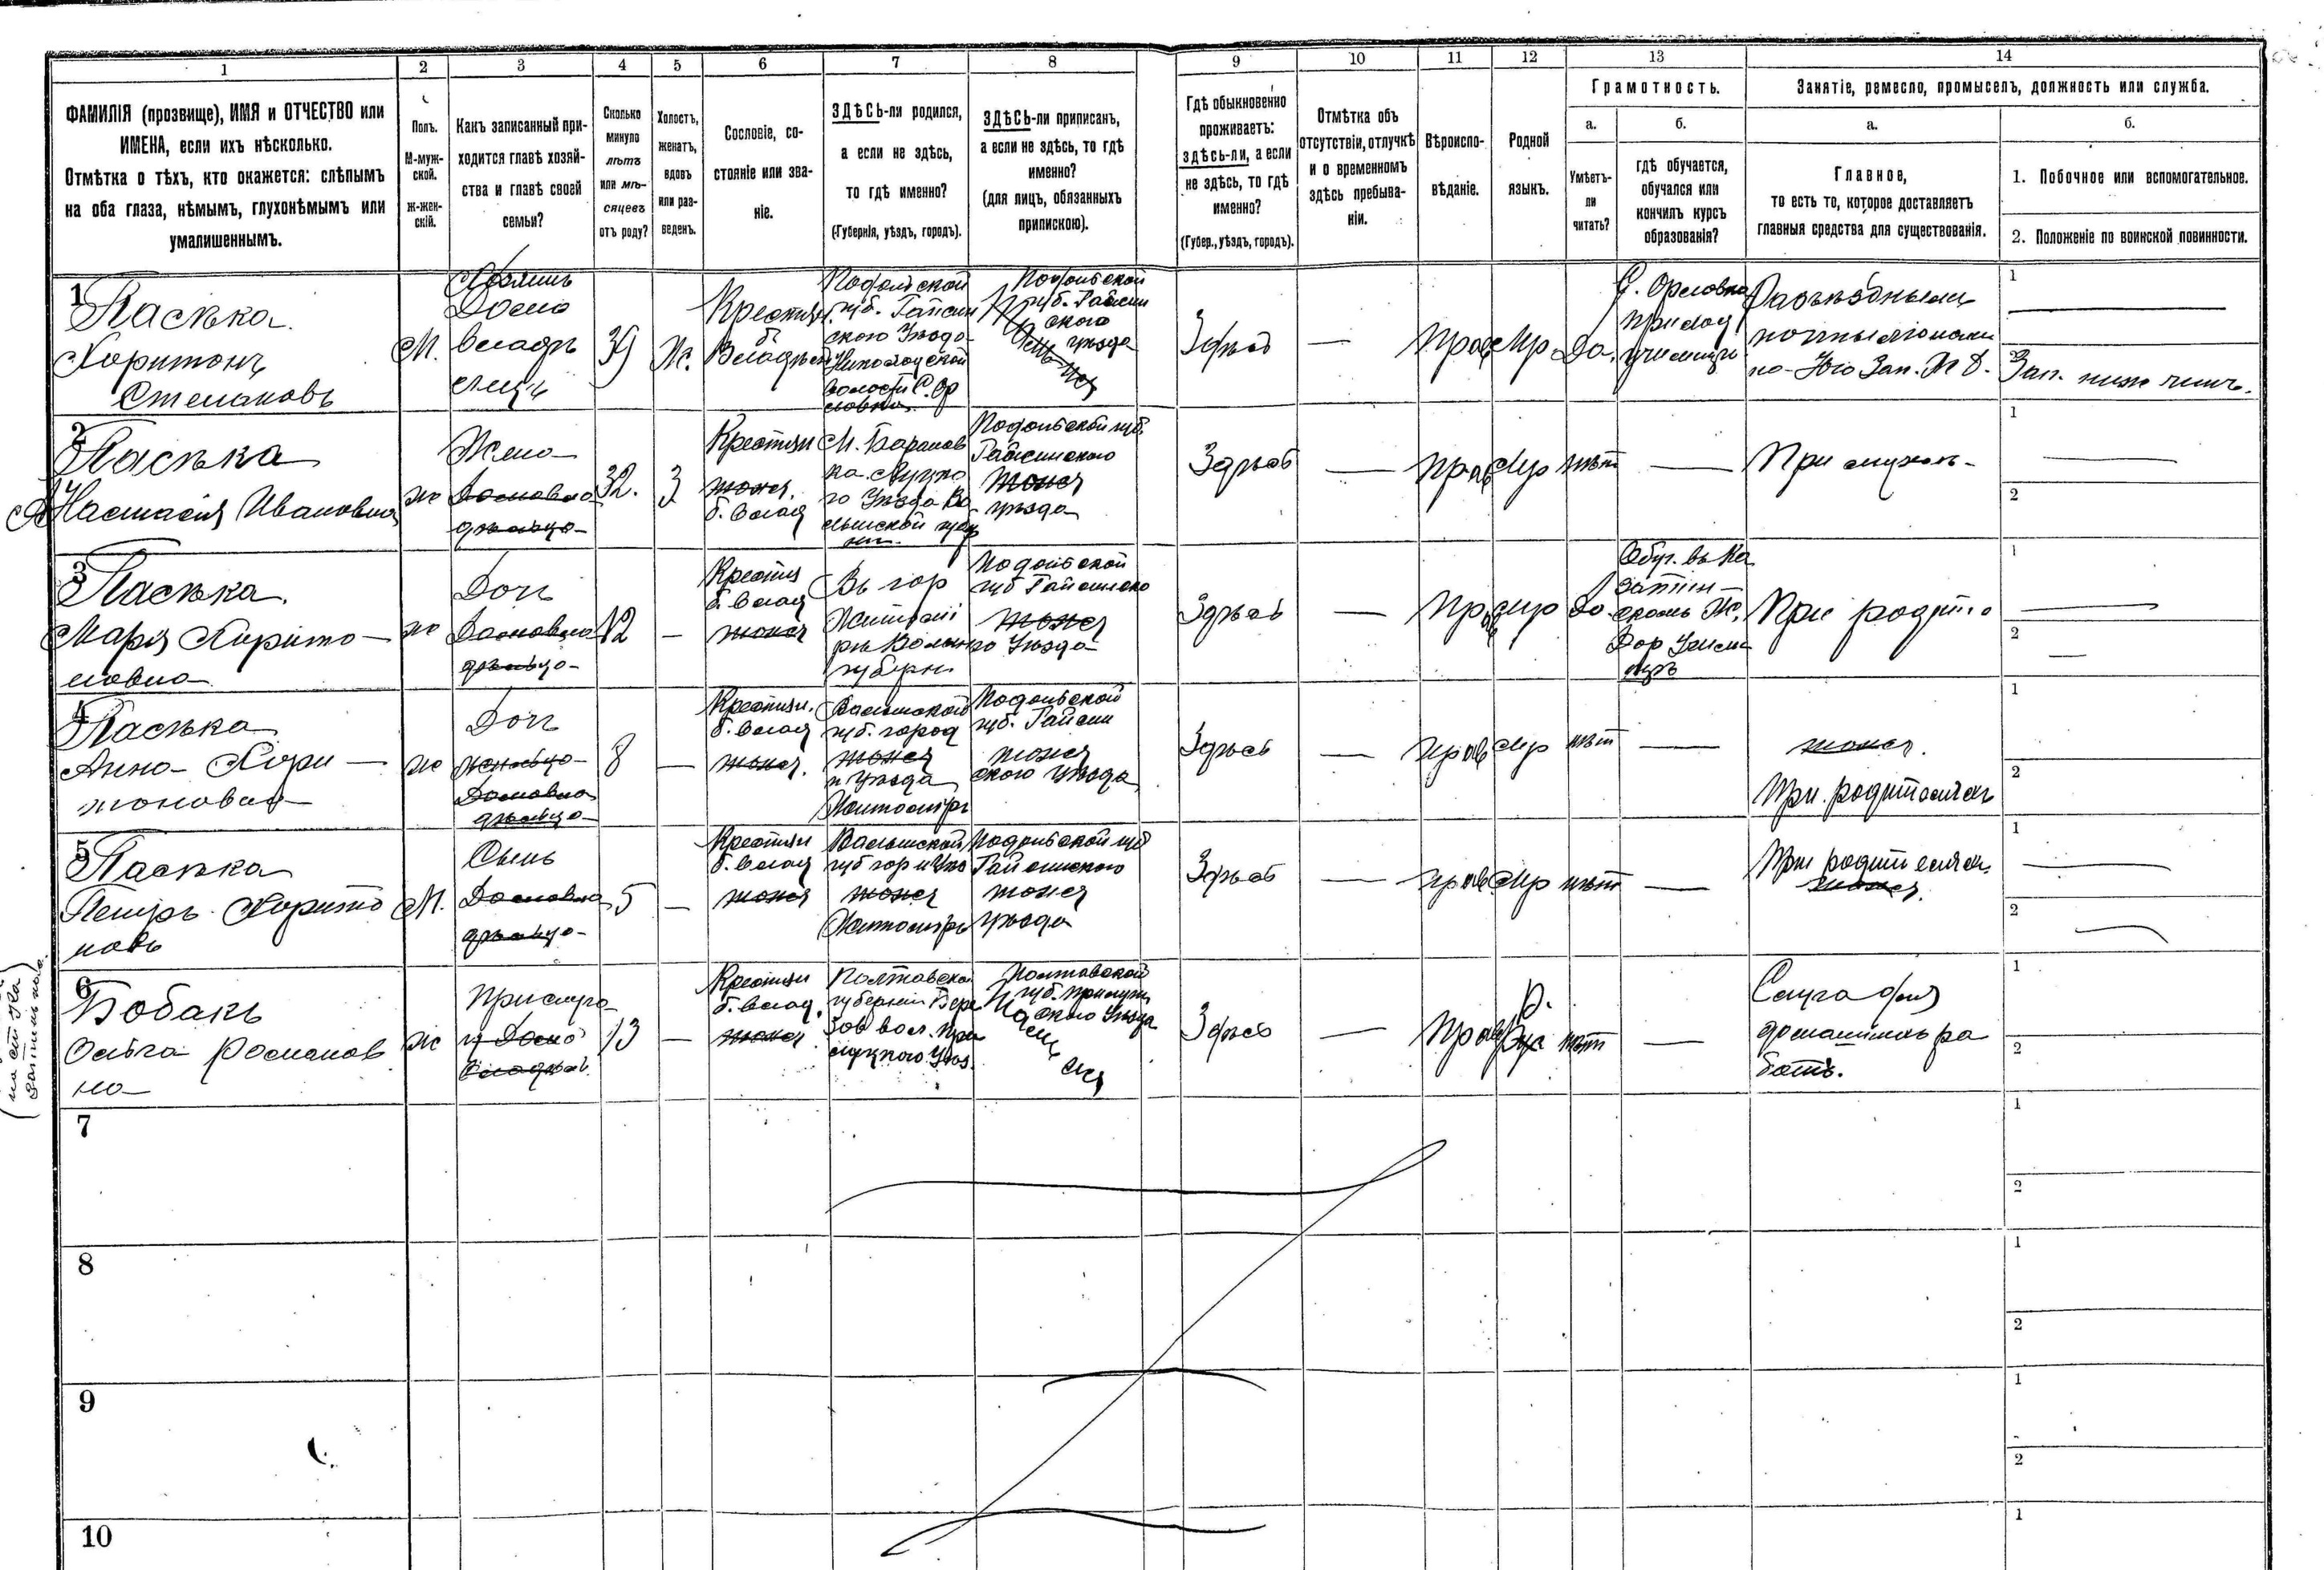 1
2
3
4
5
6
7
8
9
10
11
12
13
14
ФАМИЛІЯ (прозвище), ИМЯ и ОТЧЕСТВО или
ИМЕНА, если ихъ нѣсколько.
Отмѣтка о тѣхъ, кто окажется: слѣпымъ
на оба глаза, нѣмымъ, глухонѣмымъ или
умалишеннымъ.
Полъ.
М-муж-
ской.
ж-жен-
скій.
Какъ записанный при-
ходится главѣ хозяй-
ства и главѣ своей
семьи?
Сколько
минуло
лѣтъ
или мѣ-
сяцевъ
отъ роду?
Холостъ,
женатъ,
вдовъ
или раз-
веденъ.
Сословіе, со-
стояніе или зва-
ніе.
ЗДѢСЬ-ли родился,
а если не здѣсь,
то гдѣ именно?
(Губернія, уѣздъ, городъ).
ЗДѢСЬ-ли приписанъ,
а если не здѣсь, то гдѣ
именно?
(для лицъ, обязанныхъ
припискою).
Гдѣ обыкновенно
проживаетъ:
здѣсь-ли, а если
не здѣсь, то гдѣ
именно?
(Губер., уѣздъ, городъ).
Отмѣтка объ
отсутствіи, отлучкѣ
и о временномъ
здѣсь пребыва-
ніи.
Вѣроиспо-
вѣданіе.
Родной
языкъ.
Грамотность.
а.
Умѣетъ-
ли
читать?
б.
гдѣ обучается,
обучался или
кончилъ курсъ
образованія?
Занятіе, ремесло, промыселъ, должность или служба.
а.
Главное,
то есть то, которое доставляетъ
главныя средства для существованія.
б.
1. Побочное или вспомогательное.
2. Положеніе по воинской повинности.
1
Пасѣка
Харитонъ
Степановъ
М.
Хозяинъ
Домо
владѣ
39
Ж.
Подольской
губ. Гайсин
скаго Уѣзда
волости С. Ор
ловка
Подольской
губ. Гайсин
скаго
уѣзда
Здѣсь
—
Прав
Мр
Да.
С. Орловка
приход
училище
Разъѣзднымъ
почталіономъ
по Юго Зап. Ж Д.
1
2
Зап. ниж чинъ.
2
Пасѣка
Анастасія Ивановна
ж
Жена
32.
З
Крестьян
тоже
б. влад
М. Баранов
ка. Луцка
го Уѣзда Во
лынской губер
Подольской губ.
Гайсинскаго
тоже
уѣзда
Здѣсь
—
Прав
Мр
нѣт
—
При мужѣ
1
2
3
Пасѣка
Марія Харито
новна
ж
Доч
12
—
Крестья
б. влад
тоже
Въ гор
Житомі
рѣ Волын
губерн
Подольской
губ Гайсинска
тоже
го Уѣзда
Здѣсь
—
Прав
Мр
Да
Обуч. въ Ка
затин
скомъ Ж.
Дор Учили
щѣ
При родит
1
2
4
Пасѣка
Анна Хари
тоновна
ж
Доч
8
—
Крестьян.
б. влад
тоже.
Волынской
губ. город
тоже
и уѣзда
Житомиръ
Подольской
губ. Гайсин
тоже
скаго уѣзда
Здѣсь
—
прав
Мр
нѣт
—
тоже.
При родителяхъ
1
2
5
Пасѣка
Петръ Харито
новъ
М.
Сынъ
5
—
Крестьян
б. влад
тоже
Волынской
губ гор и Уѣз
тоже
Житомиръ
Подольской губ
Гайсинскаго
тоже
уѣзда
Здѣсь
—
прав
Мр
нѣт
—
При родителях
тоже.
1
2
6
Бобакъ
Ольга Романов
на
ж
Прислуга
13
—
Крестьян
б. влад.
тоже
Полтавской
губерніи Бере
зов вол. При
луцкаго Уѣз.
Полтавской
губ. Прилуц
скаго Уѣзда
Здѣсь
—
Прав
Р.
нѣт
—
Слуга для
домашнихъ ра
ботъ.
1
2
7
1
2
8
1
2
9
1
2
10
1